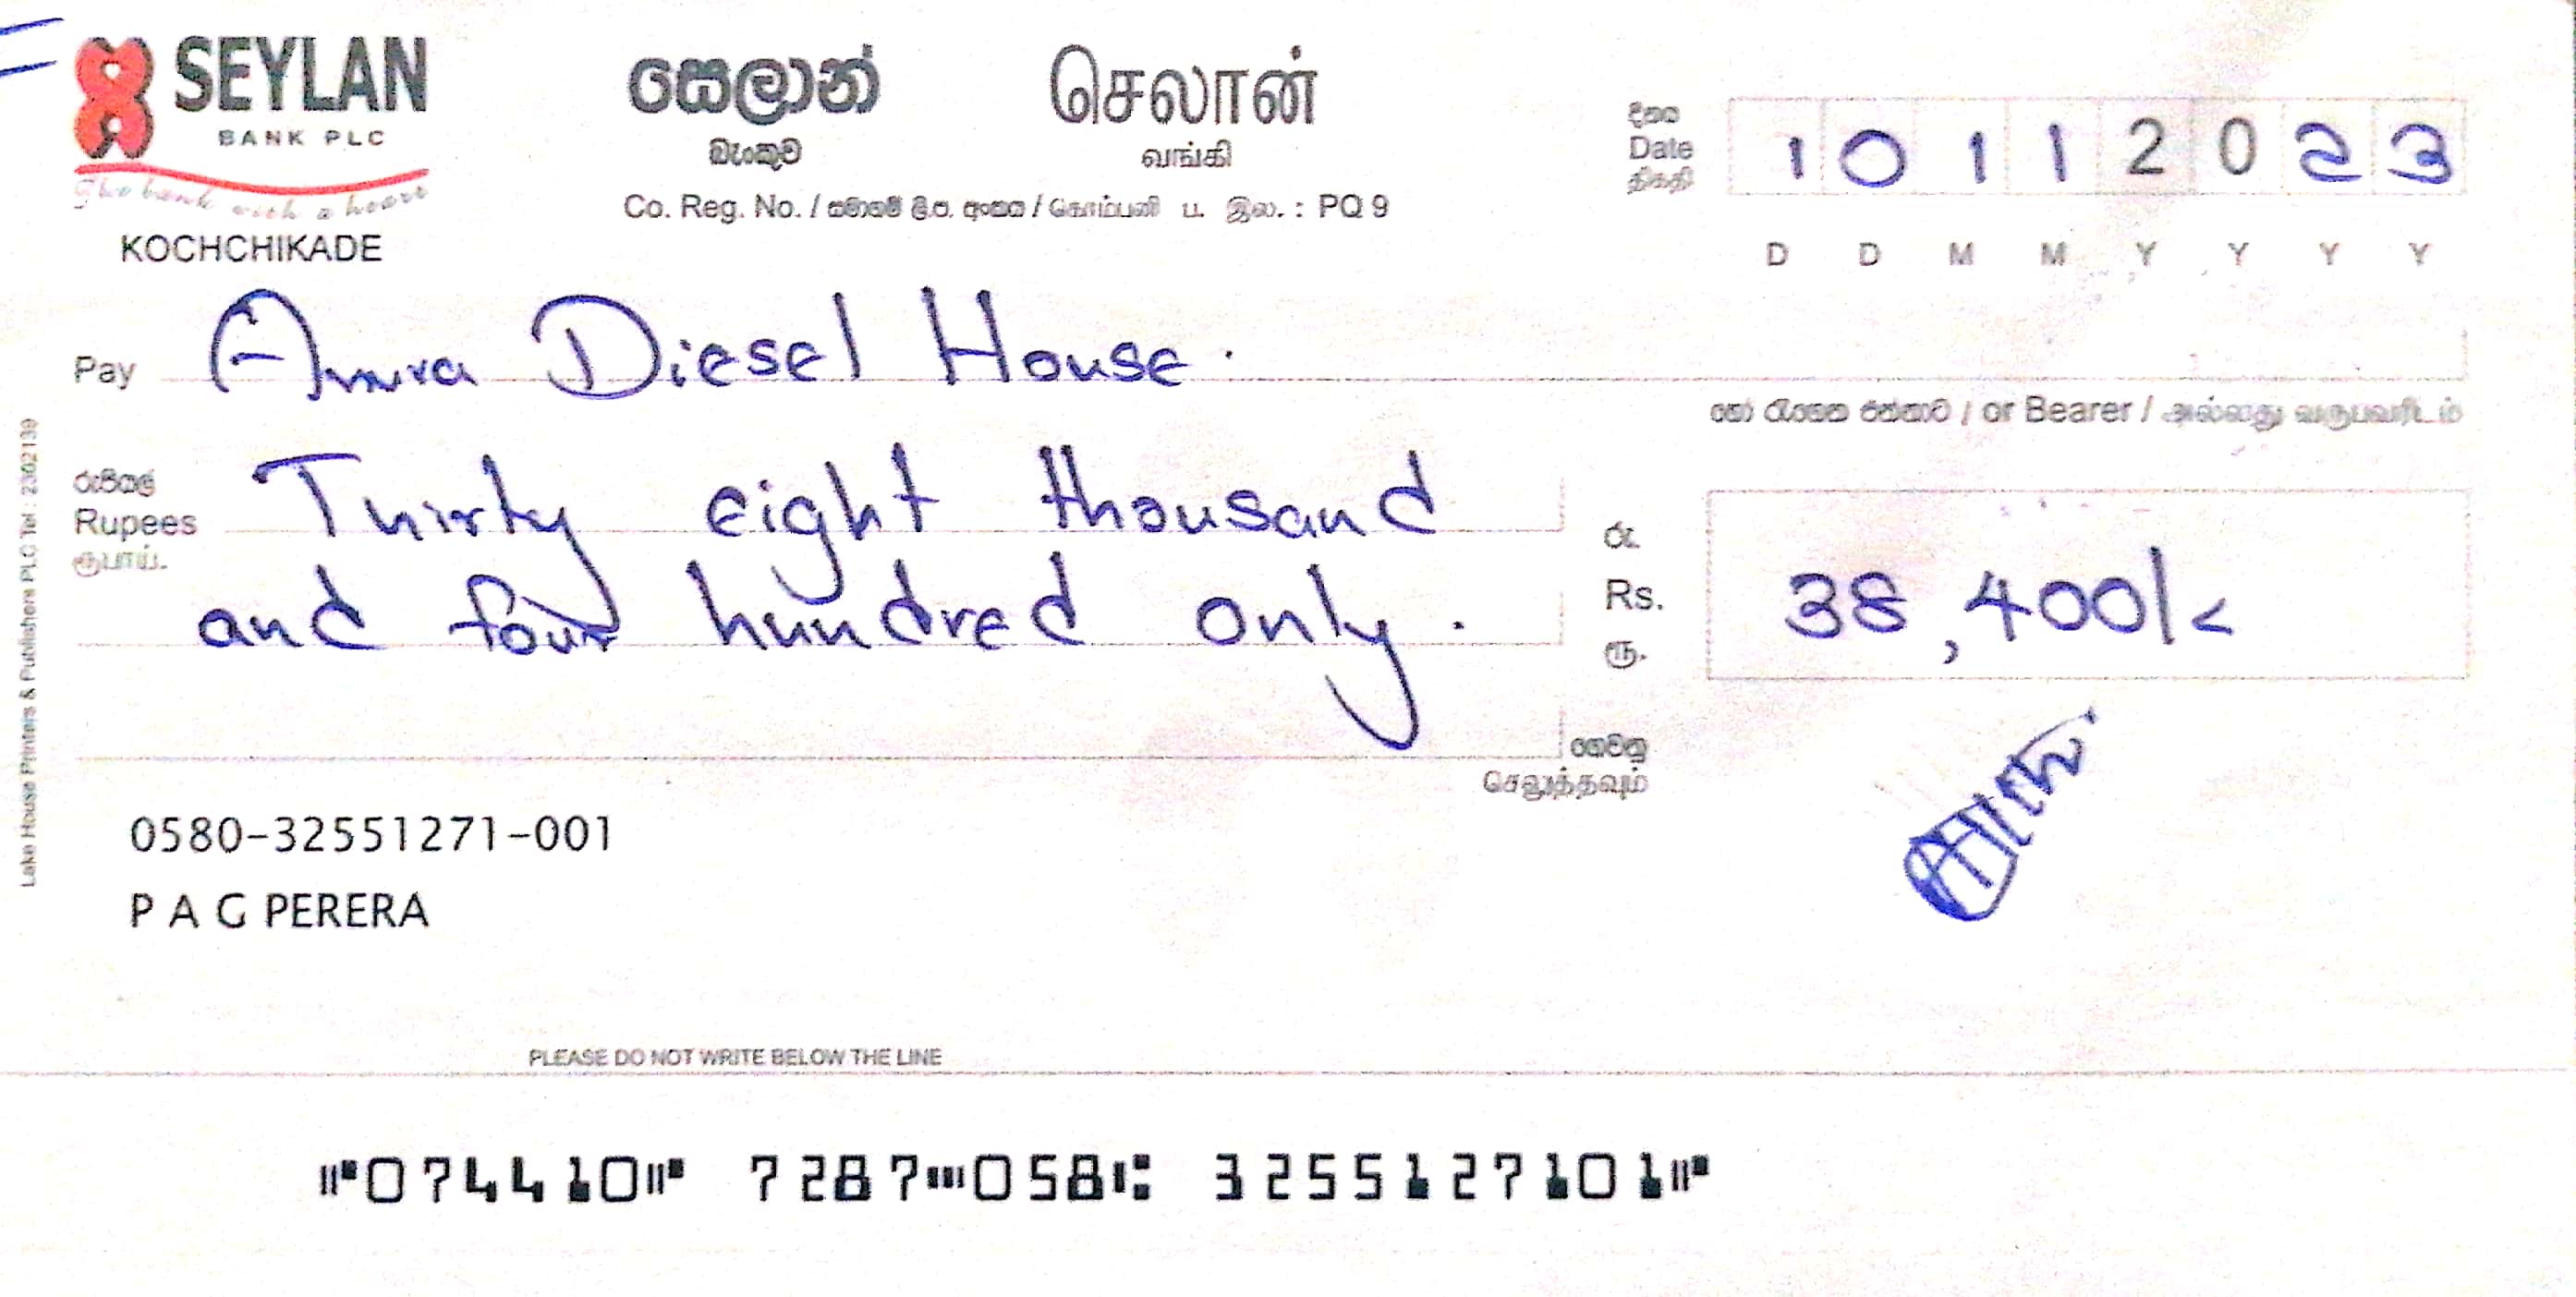 SEYLAN
BANK PLC
The bank with a heart
KOCHCHIKADE
සෙලාන්
බැංකුව
செலான்
வங்கி
Co. Reg. No. / සමාගම් ලි.ප. අංකය / கொம்பனி ப. இல. : PQ 9
දිනය
Date
திகதி
1 0 1 1 2 0 2 3
D D M M Y Y Y Y
Pay Anura Diesel House.
/ or Bearer / அல்லது வருபவரிடம்
රුපියල්
Rupees
ரூபாய்.
Thirty eight thousand
and four hundred only.
රු.
Rs.
ரூ.
38,400/-
ගෙවනු
செலுத்தவும்
0580-32551271-001
P A G PERERA
Lake House Printers & Publishers PLC Tel : 2302139
PLEASE DO NOT WRITE BELOW THE LINE
⑈074410⑈ 7287⑉058⑆ 325512710 1⑈